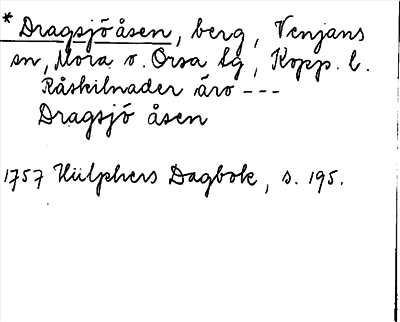 * Dragsjöåsen, berg, Venjans
sn, Mora o. Orsa tg, Kopp. l.
Råskilnader äro ---
Dragsjö åsen
1757 Hülphers Dagbok, s. 195.